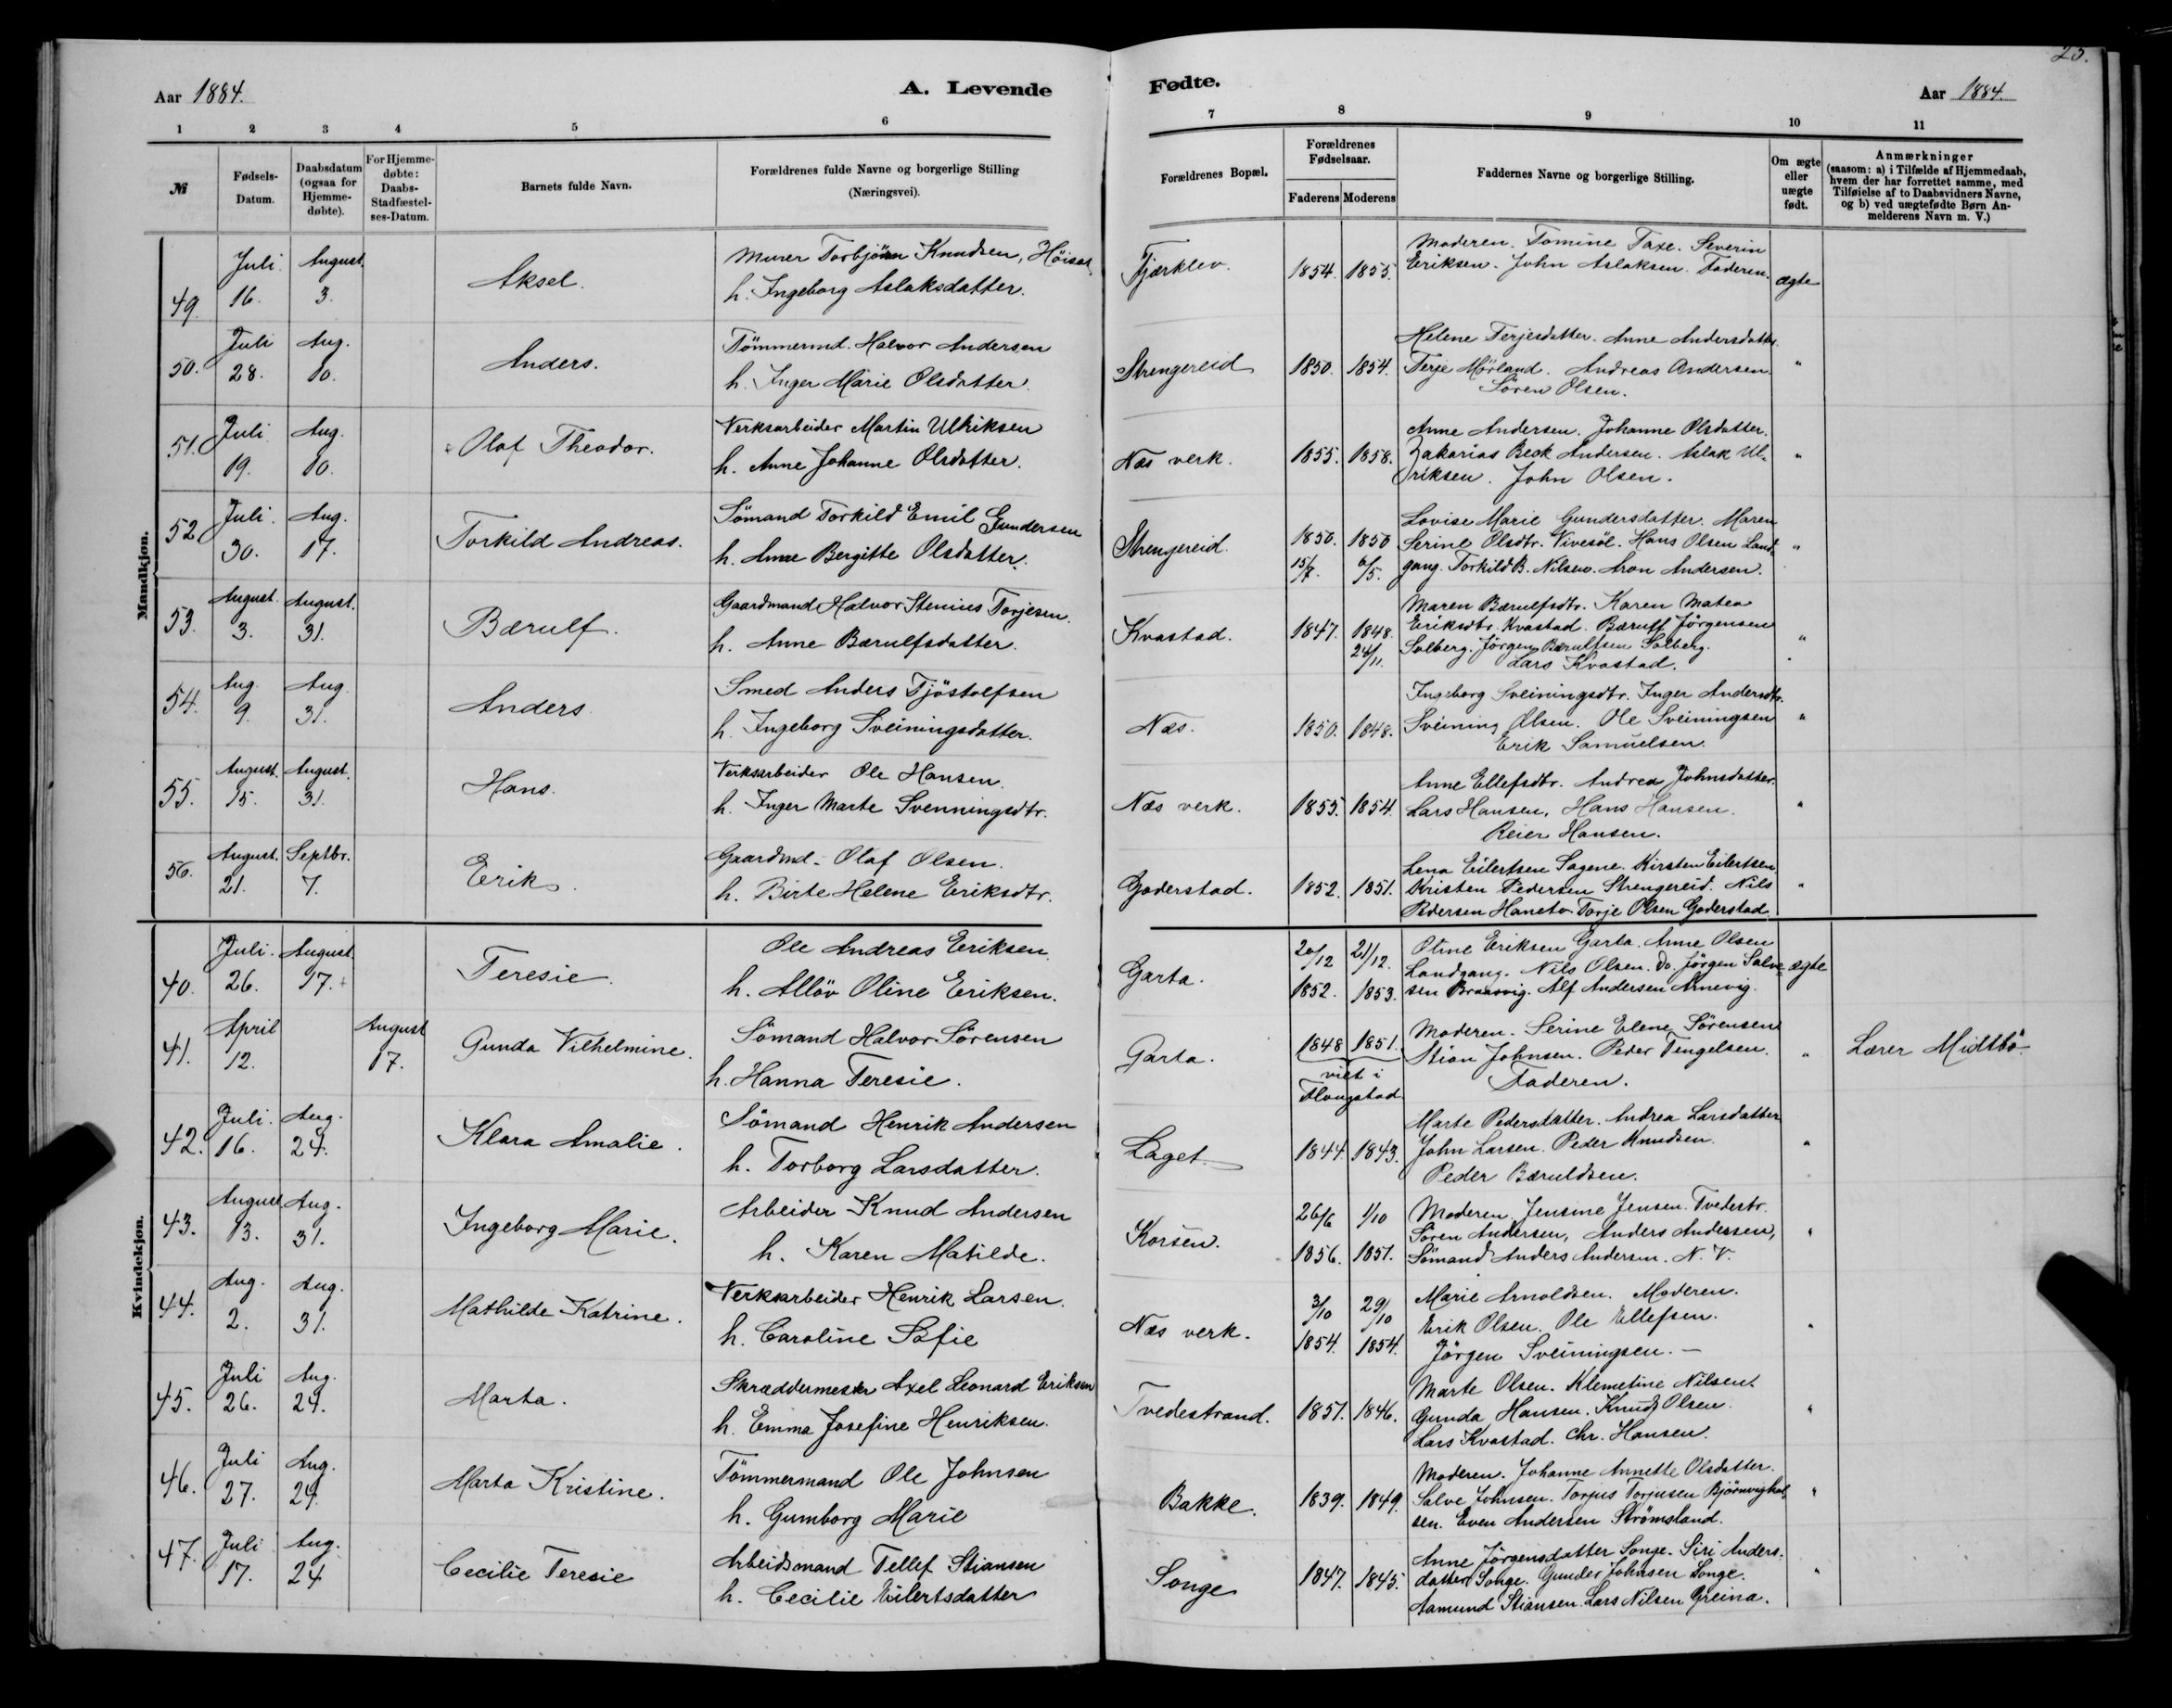 25.
Aar 1884.
A. Levende
Fødte.
Aar 1884.
1 2 3 4 5 6 7 8 9 10 11
№
Fødsels-Datum.
Daabsdatum (ogsaa for Hjemme-døbte).
For Hjemme-døbte: Daabs-Stadfæstel-ses-Datum.
Barnets fulde Navn.
Forældrenes fulde Navne og borgerlige Stilling
(Næringsvei).
Forældrenes Bopæl.
Forældrenes Fødselsaar.
Faderens Moderens
Faddernes Navne og borgerlige Stilling.
Om ægte eller uægte født.
Anmærkninger
(saasom: a) i Tilfælde af Hjemmedaab,
hvem der har forrettet samme, med
Tilføielse af to Daabsvidners Navne,
og b) ved uægtefødte Børn An-
melderens Navn m. V.)
Mandkjøn.
49. Juli 16. August 3. Aksel.
Murer Torbjörn Knudsen, Höiaas
h. Ingeborg Aslaksdatter.
Fjærklev. 1854. 1855.
Moderen. Tomine Taxe. Severin
Eriksen. John Aslaksen. Faderen. ægte
50. Juli 28. Aug. 10. Anders.
Tömmermd. Halvor Andersen
h. Inger Marie Olsdatter.
Strengereid 1850. 1854.
Helene Terjesdatter. Anne Andersdatter.
Terje Mörland. Andreas Andersen. "
Sören Olsen.
51. Juli 19. Aug. 10. Olaf Theodor.
Verksarbeider Martin Ulriksen
h. Anne Johanne Olsdatter.
Næs verk. 1855. 1858.
Anne Andersen. Johanne Olsdatter.
Zakarias Beck Andersen. Aslak Ul- "
riksen. John Olsen.
52 Juli. 30. Aug. 17. Torkild Andreas.
Sömand Torkild Emil Gundersen
h. Anne Bergitte Olsdatter.
Strengereid. 1850. 15/7. 1850 6/5.
Lovise Marie Gundersdatter. Maren
Serine Olsdtr. Vivesöl. Hans Olsen Land- "
gang. Torkild B. Nilsen. Aron Andersen.
53. August. 3. August. 31. Bærulf.
Gaardmand Halvor Stenius Torjesen.
h. Anne Bærulfsdatter.
Kvastad. 1847. 1848. 24/11.
Maren Bærulfsdtr. Karen Matea
Eriksdtr. Kvastad. Bærulf Jörgensen "
Solberg. Jörgen Bærulfsen Solberg.
Lars Kvastad.
54. Aug. 9. Aug. 31. Anders
Smed Anders Tjöstolfsen
h. Ingeborg Sveiningsdatter.
Næs. 1850. 1848.
Ingeborg Sveiningsdtr. Inger Andersdtr.
Sveining Olsen. Ole Sveiningsen "
Erik Samuelsen.
55. August. 15. August. 31. Hans.
Verksarbeider Ole Hansen.
h. Inger Marte Svenningsdtr.
Næs verk. 1855. 1854.
Anne Ellefsdtr. Andrea Johnsdatter.
Lars Hansen, Hans Hansen. "
Reier Hansen.
56. August. 21. Septbr. 7. Erik.
Gaardmd. Olaf Olsen.
h. Birte Helene Eriksdtr.
Goderstad. 1852. 1851.
Lena Eilertsen Sagene. Kirsten Eilertsen
Kristen Pedersen Strengereid. Nils "
Pedersen Haneto. Torje Olsen Goderstad
Kvindekjøn.
40. Juli. 26. August. 17. Teresie.
Ole Andreas Eriksen
h. Allöv Oline Eriksen.
Garta. 20/12 1852. 21/12. 1853.
Otine Eriksen Garta. Anne Olsen
Landgang. Nils Olsen. do. Jörgen Salve- ægte
sen Braasvig. Alf Andersen Arnevig.
41. April 12. August 17. Gunda Vilhelmine.
Sömand Halvor Sörensen
h. Hanna Teresie.
Garta. 1848 1851.
viet i
Flougstad
Moderen. Serine Elene Sörensen
Stian Johnsen. Peder Tengelsen. " Lærer Midtbö
Faderen.
42. Juli. 16. Aug. 24. Klara Amalie.
Sömand Henrik Andersen
h. Torborg Larsdatter.
Laget 1844. 1843.
Marte Pedersdatter. Andrea Larsdatter
John Larsen. Peder Knudsen. "
Peder Bæruldsen.
43. August 13. Aug. 31. Ingeborg Marie.
Arbeider Knud Andersen
h. Karen Matilde.
Korsen. 26/6 1856. 1/10 1851.
Moderen. Jensine Jensen. Tvedestr.
Sören Andersen, Anders Andersen, "
Sömand Anders Andersen. N. V.
44. Aug. 2. Aug. 31. Mathilde Katrine.
Verksarbeider Henrik Larsen.
h. Caroline Sofie
Næs verk. 3/10 1854. 29/10 1854.
Marie Arnoldsen. Moderen.
Erik Olsen. Ole Ellefsen. "
Jörgen Sveiningsen. —
45. Juli 26. Aug. 24. Marta.
Skræddermester Axel Leonard Eriksen
h. Emma Josefine Henriksen.
Tvedestrand. 1851. 1846.
Marte Olsen. Klemetine Nilsen.
Gunda Hansen. Knud Olsen. "
Lars Kvastad. Chr. Hansen.
46. Juli 27. Aug. 24. Marta Kristine.
Tömmermand Ole Johnsen
h. Gumborg Marie
Bakke. 1839. 1849.
Moderen. Johanne Annette Olsdatter.
Salve Johnsen. Torjus Torjusen Björnvighol- "
sen. Even Andersen Strömsland.
47. Juli 17. Aug. 24 Cecilie Teresie
Arbeidsmand Tellef Stiansen
h. Cecilie Eilertsdatter
Songe 1847. 1845.
Anne Jörgensdatter Songe. Siri Anders-
datter Songe. Gunder Johnsen Songe. "
Aamund Stiansen. Lars Nilsen Greina.